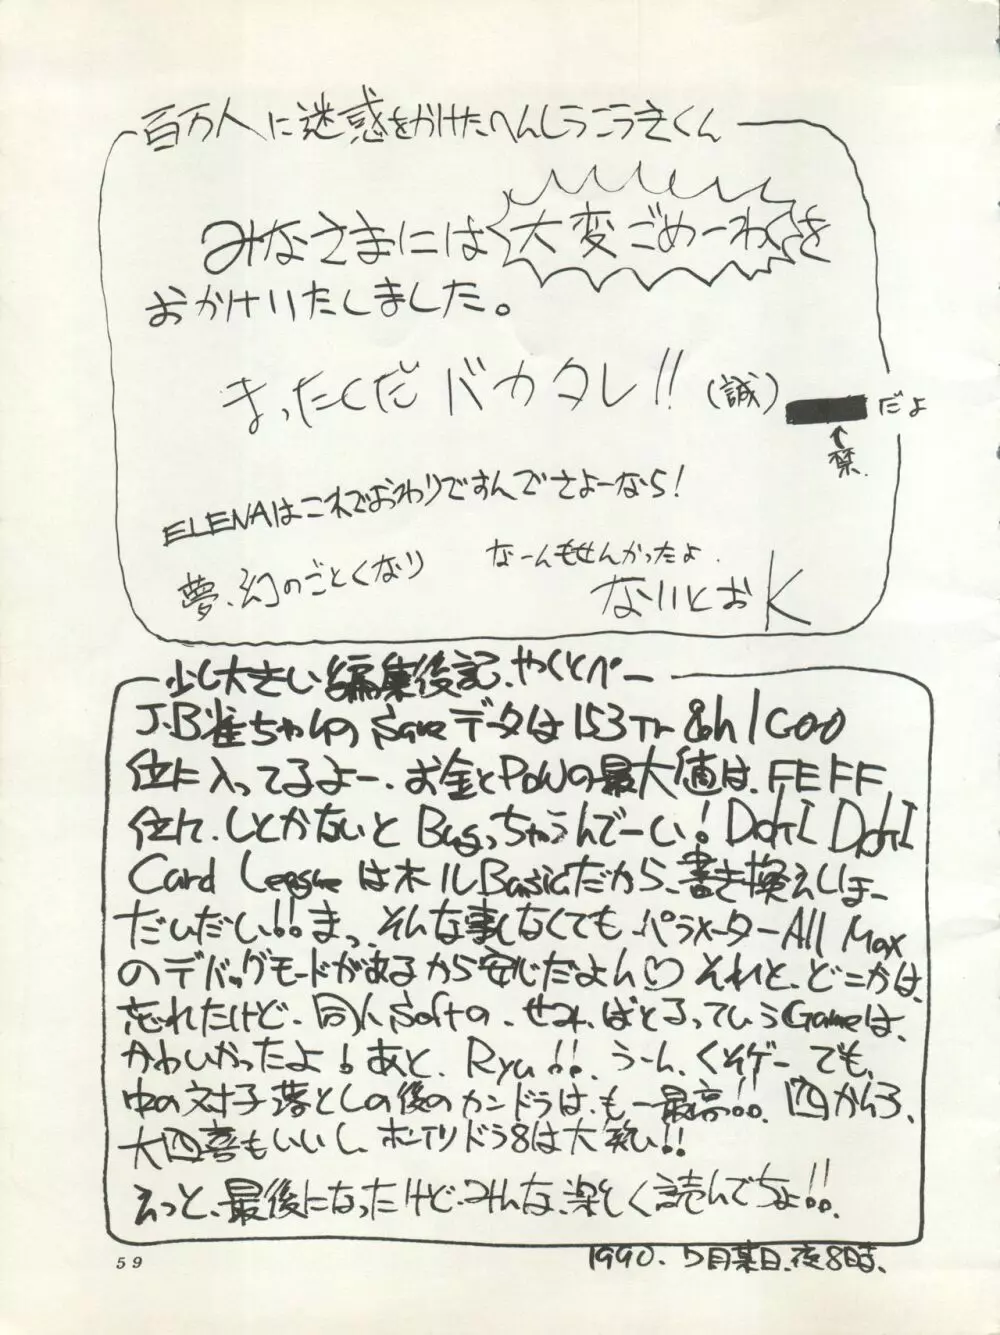 百万人に迷惑をかけたへんしうこうきくん
みなさまには大変ごめーわくを
おかけいたしました。
まったくだバカタレ!!(誠)
だよ
↑
禁
ELENAはこれでおわりですんでさよーなら!
夢、幻のごとくなり
なーんもせんかったよ.
ないとおK
少し大きい編集後記、やくとぺー
J.B雀ちゃんのSaveデータは153Tr &h1C00
位に入ってるよー、お金とPOWの最大値は、FEFF
位に、しとかないとBugっちゃうんでーい!DOKI DOKI
Card Leagueは木ルBasicだから、書き換えしほー
だいだい!!まっ、そんな事しなくてもパラメーターAll Max
のデバッグモードがあるから安心だよん♡それと、どこかは、
忘れたけど、同人Softの、せみ、ばとるっていうGameは、
かわいかったよ!あと、Ryu!!.うーん、くそゲーでも、
中の対子落としの後のカンドラは、も一最高!!.四かんつ、
大四喜もいいし、ホンイツドラ8は大笑い!!
えっと、最後になったけど、みんな、楽しく読んでちょ!!.
1990.7月某日.夜8時.
59